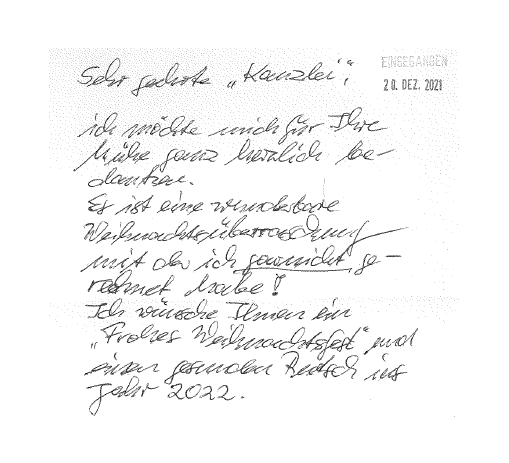 EINGEGANGEN
20. DEZ. 2021
Sehr geehrte „Kanzlei",
ich möchte mich für Ihre
Mühe ganz herzlich be-
danken.
Es ist eine wunderbare
Weihnachtsüberraschung
mit der ich garnicht ge-
rechnet habe!
Ich wünsche Ihnen ein
„Frohes Weihnachtsfest" und
einen gesunden Rutsch ins
Jahr 2022.